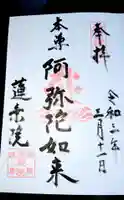 奉拝
令和六年
三月十一日
本尊
阿弥陀如来
蓮乗院